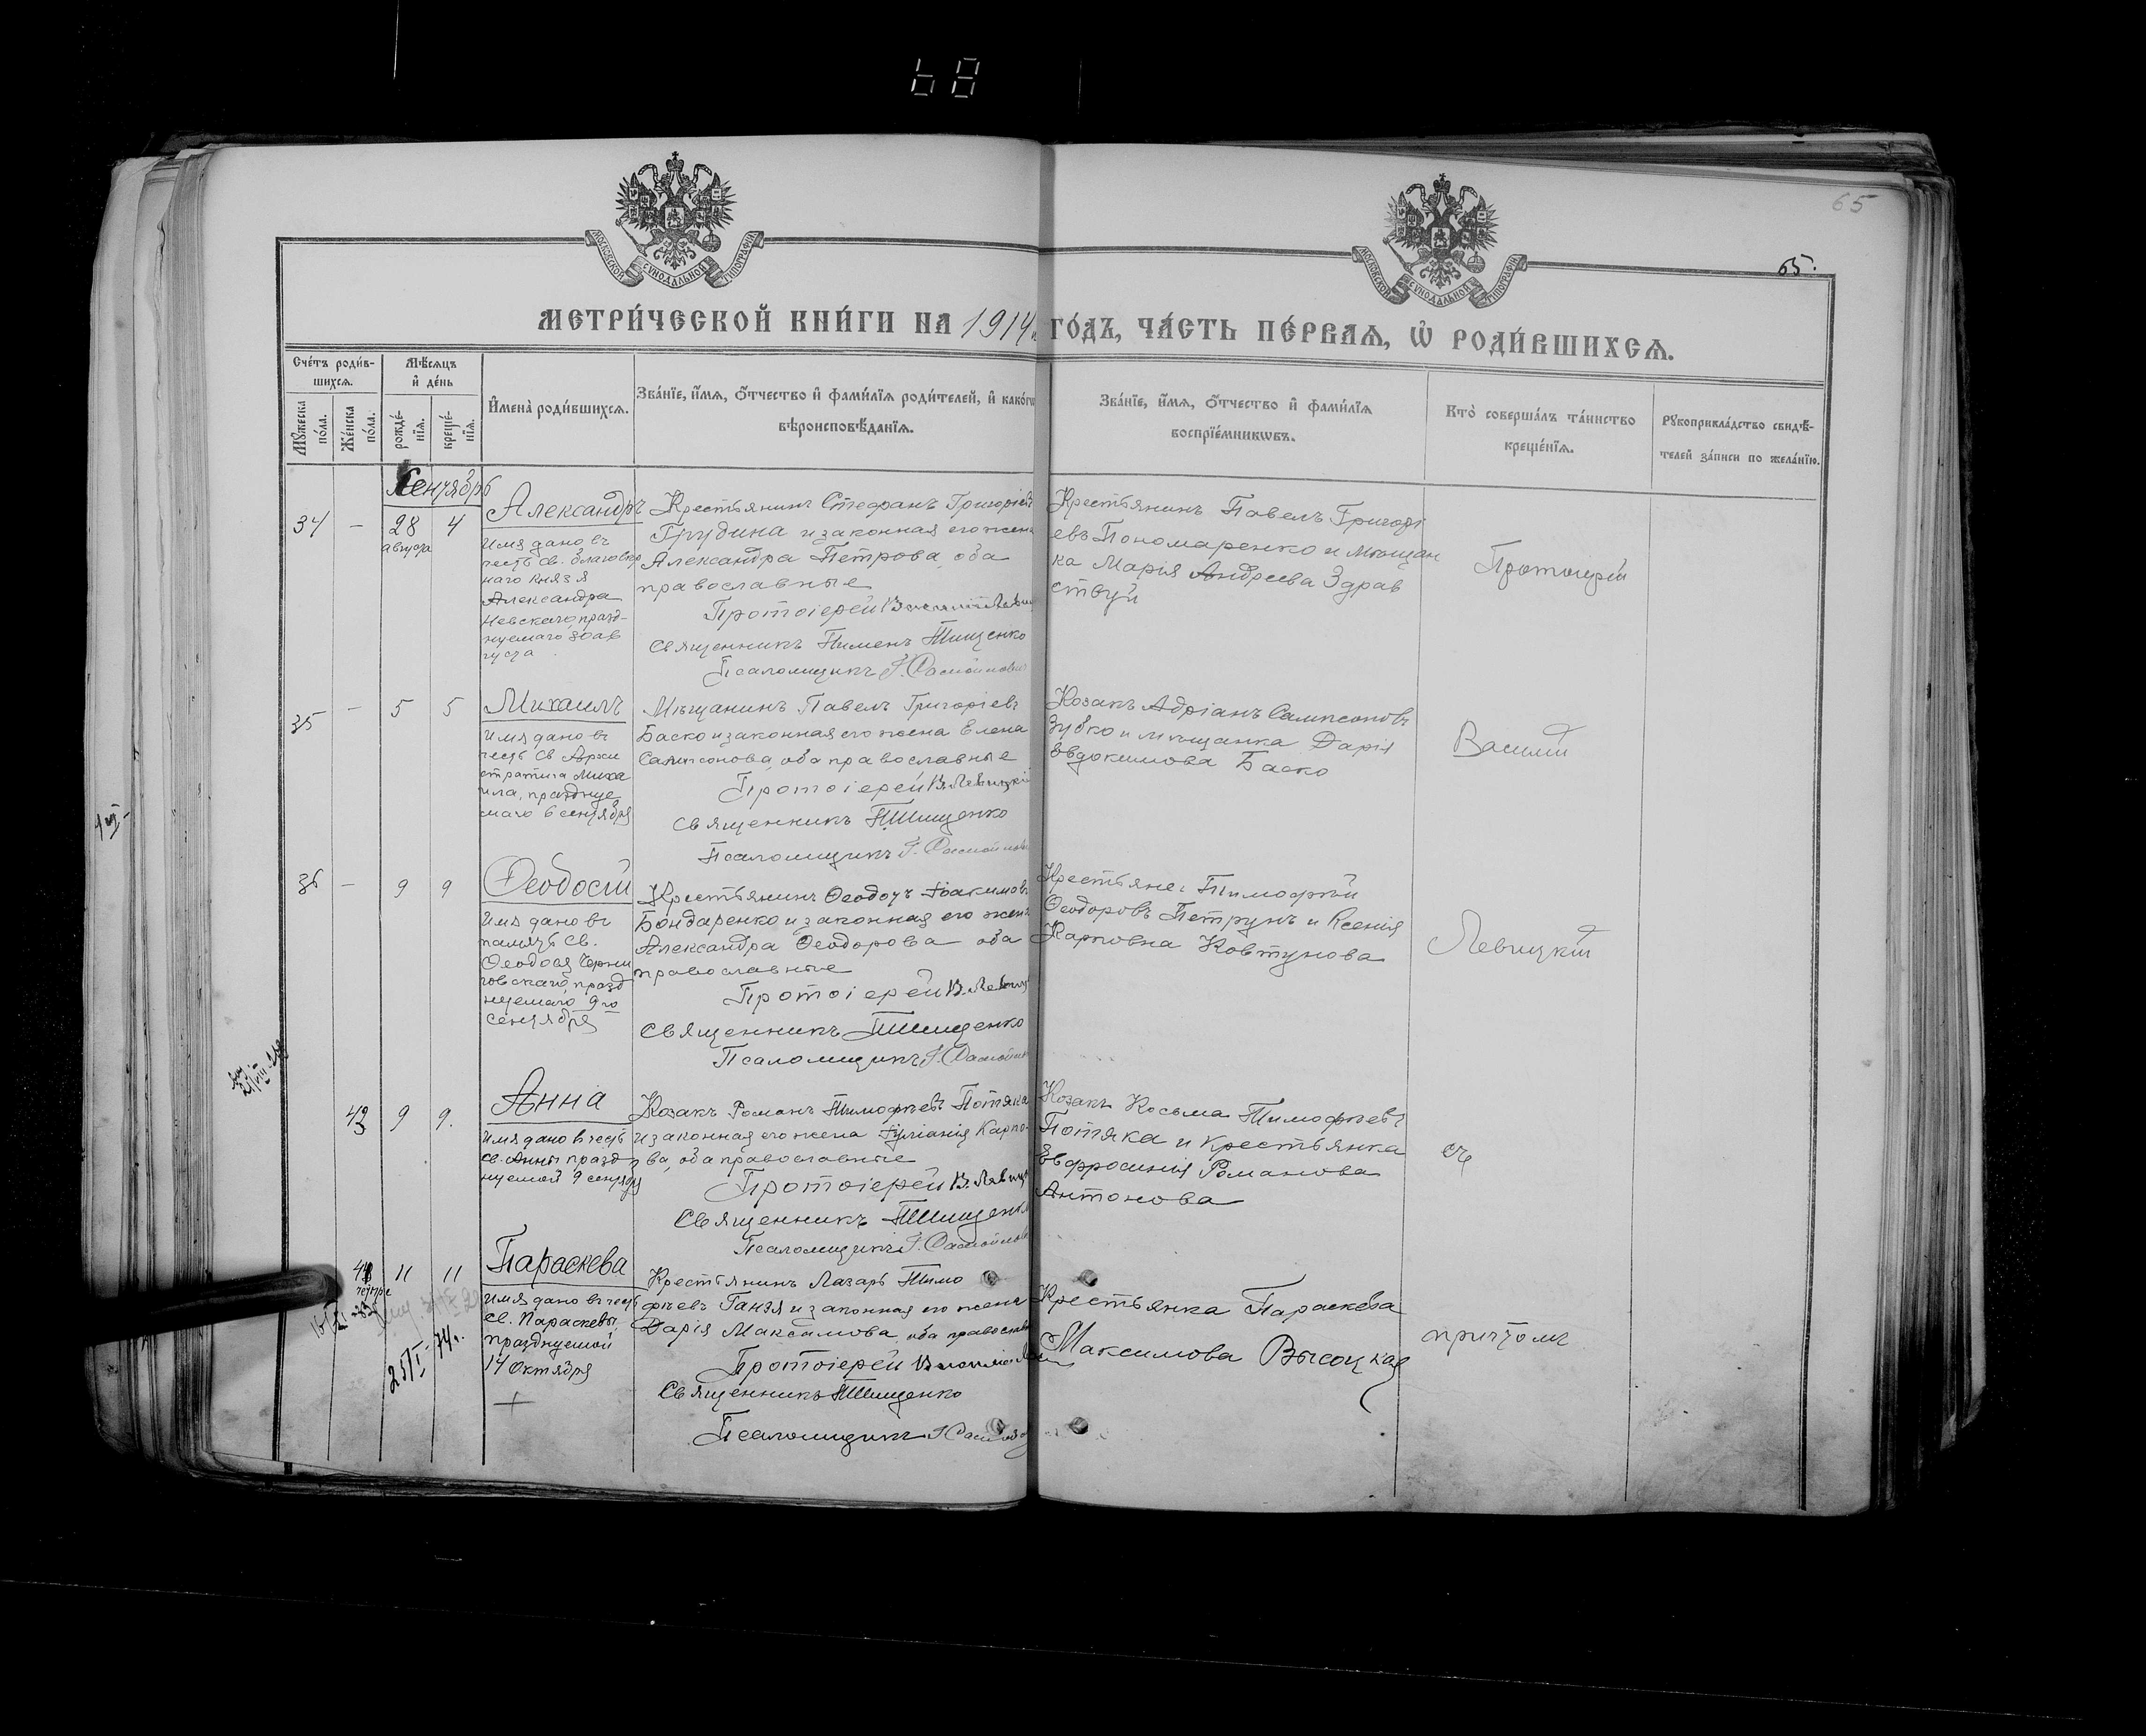 68
65
65.
МОСКОВСКОЙ СѴНОДАЛЬНОЙ ТИПОГРАФІИ
МОСКОВСКОЙ СѴНОДАЛЬНОЙ ТИПОГРАФІИ
МЕТРИ́ЧЕСКОЙ КНИ́ГИ НА 1914 ГО́ДЪ, ЧА́СТЬ ПЕ́РВАЯ, Ѡ РОДИ́ВШИХСЯ.
Сче́тъ роди́в-
шихся.
Мѣ́сяцъ
и де́нь
Мꙋ́жеска
по́ла.
Же́нска
по́ла.
рожде́-
нїя.
креще́-
нїя.
И҆мена̀ роди́вшихся.
Зва́нїе, и҆́мя, ѻ҆́тчество и҆ фами́лїя роди́телей, и҆ како́гѡ
вѣроисповѣ́данїя.
Зва́нїе, и҆́мя, ѻ҆́тчество и҆ фами́лїя
воспрїе́мникѡвъ.
Кто̀ соверша́лъ та́инство
креще́нїя.
Рꙋкоприкла́дство свидѣ́-
телей за́писи по жела́нїю.
Сентябрь
34
—
28
августа
4
Александръ
Имя дано въ
честь св. благовѣр
наго князя
Александра
Невскаго, празд-
нуемаго 30 ав
густа
Крестьянинъ Стефанъ Григоріевъ
Грудина и законная его жена
Александра Петрова, оба
православные
Протоіерей
Священникъ Пименъ Тищенко
Псаломщикъ
Крестьянинъ Павелъ Григорі
евъ Пономаренко и мѣщан
ка Марія Андреева Здрав
ствуй
Протоіерей
35
—
5
5
Михаилъ
Имя дано въ
честь Св. Архи
стратига Миха
ила, праздnуе
маго 6 сентября
Мѣщанинъ Павелъ Григоріевъ
Баско и законная его жена Елена
Сампсонова, оба православные
Протоіерей В. Левицкій
Священникъ П. Тищенко
Псаломщикъ
Козакъ Адріанъ Сампсоновъ
Зубко и мѣщанка Дарія
Евдокимова Баско
Василій
36
—
9
9
Ѳеодосій
Имя дано въ
память св.
Ѳеодосія Черни
говскаго, празд
нуемаго 9го
сентября
Крестьянинъ Ѳеодотъ Іоакимовъ
Бондаренко и законная его жена
Александра Ѳеодорова оба
православные
Протоіерей В. Левиц
Священникъ П. Тищенко
Псаломщикъ
Крестьяне: Тимофѣй
Ѳеодоровъ Петрунъ и Ксенія
Карповна Ковтунова
Левицкій
43
9
9.
Анна
Имя дано въ честь
св. Анны празд
нуемой 9 сентября
Козакъ Романъ Тимофѣевъ Потяка
и законная его жена Іуліанія Карпо-
ва, оба православные
Протоіерей В. Левиц
Священникъ П. Тищенко
Псаломщикъ
Козакъ Косьма Тимофѣевъ
Потяка и крестьянка
Евфросинія Романова
Антонова
съ
44
11
11
Параскева
Имя дано въ честь
св. Параскевы,
празднуемой
14 Октября
Крестьянинъ Лазарь Тимо
фѣевъ Ганзя и законная его жена
Дарія Максимова, оба православ
Протоіерей
Священникъ П. Тищенко
Псаломщикъ
Крестьянка Параскева
Максимова Высоцкая
причтомъ
25/I-74г.